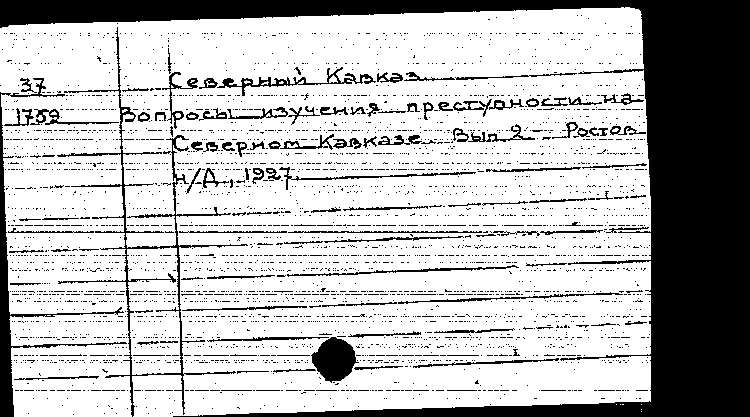 Северный Кавказ
37
1752 Вопросы изучения преступности на
Северном Кавказе. Вып 2 – Ростов
н/Д, 1927.